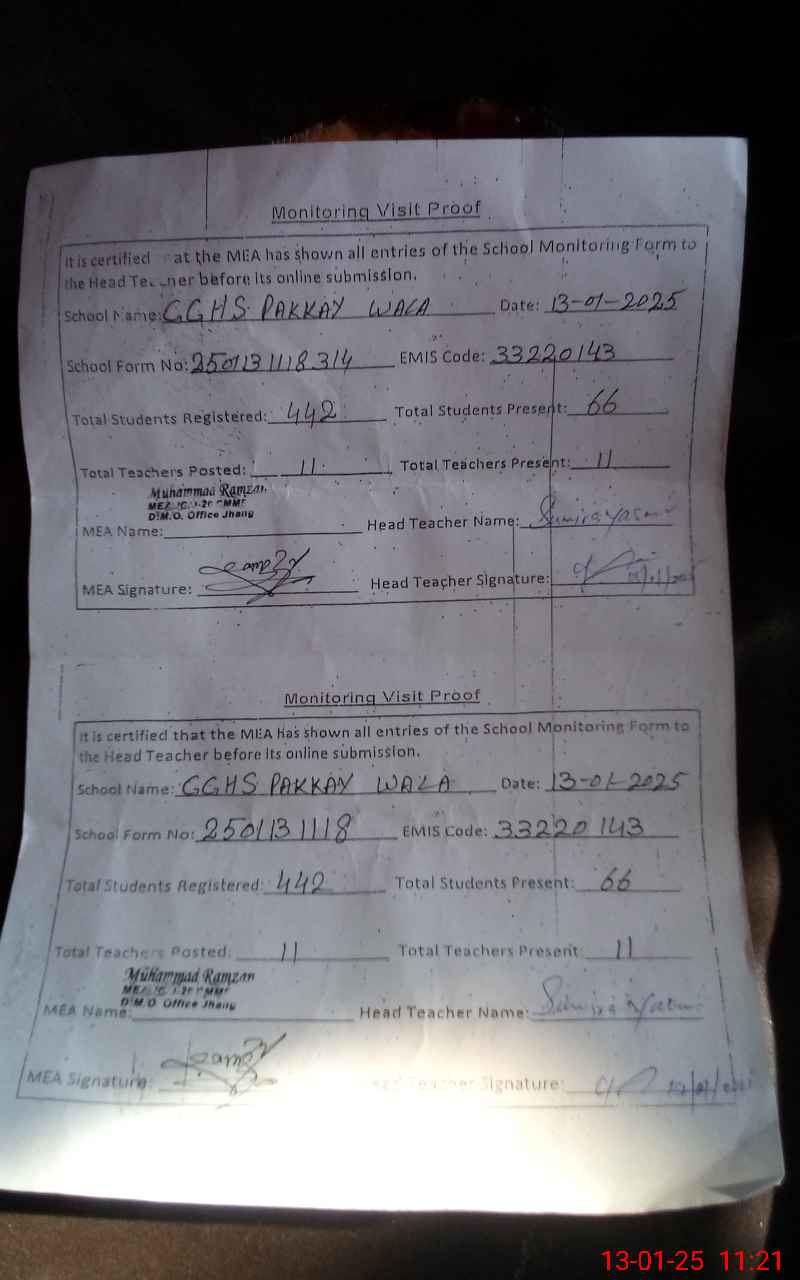 Monitoring Visit Proof
It is certified at the MEA has shown all entries of the School Monitoring Form to
the Head before its online submission.
School Name: GGHS PAKKAY WALA Date: 13-01-2025
School Form No: 2501131118314 EMIS Code: 33220143
Total Students Registered: 442 Total Students Present: 66
Total Teachers Posted: 11 Total Teachers Present: 11
Muhammad Ramzan
D.M.O. Office Jhang
MEA Name: Head Teacher Name:
MEA Signature: Head Teacher Signature:
Monitoring Visit Proof
It is certified that the MEA has shown all entries of the School Monitoring Form to
the Head Teacher before its online submission.
School Name: GGHS PAKKAY WALA Date: 13-01-2025
School Form No: 2501131118 EMIS Code: 33220143
Total Students Registered: 442 Total Students Present: 66
Total Teachers Posted: 11 Total Teachers Present: 11
Muhammad Ramzan
D.M.O. Office Jhang
MEA Name: Head Teacher Name:
MEA Signature: Teacher Signature:
13-01-25 11:21